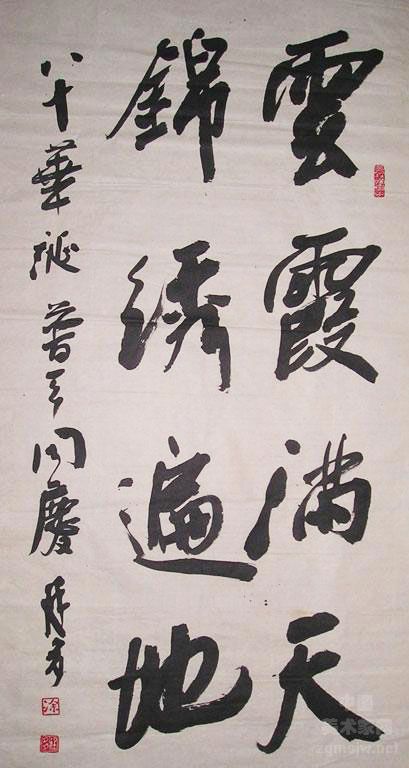 雲霞满天
錦绣遍地
八十華诞普天同慶
中国
美术家网
zgmsjw.net